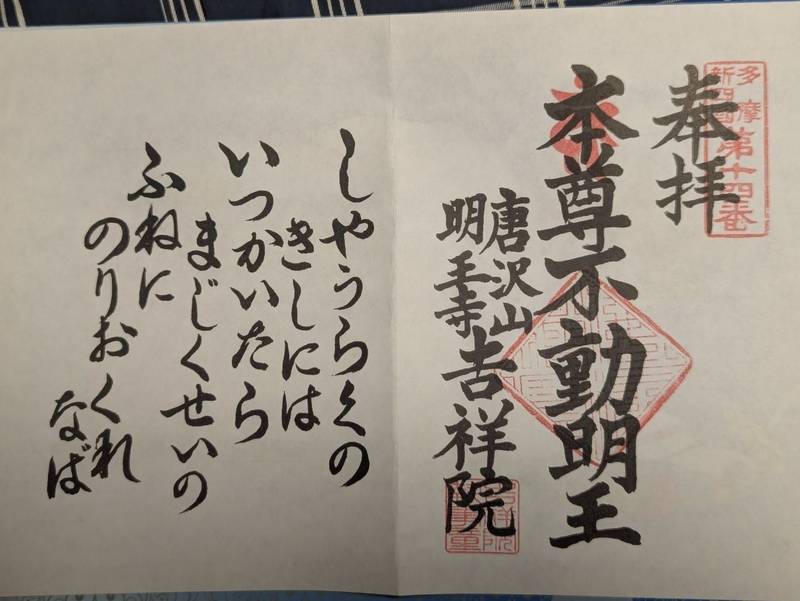 多摩
新四國
第十四番
奉拝
本尊不動明王
唐沢山
明王寺
吉祥院
しやうらくの
きしには
いつかいたら
まじくせいの
ふねに
のりおくれ
なば